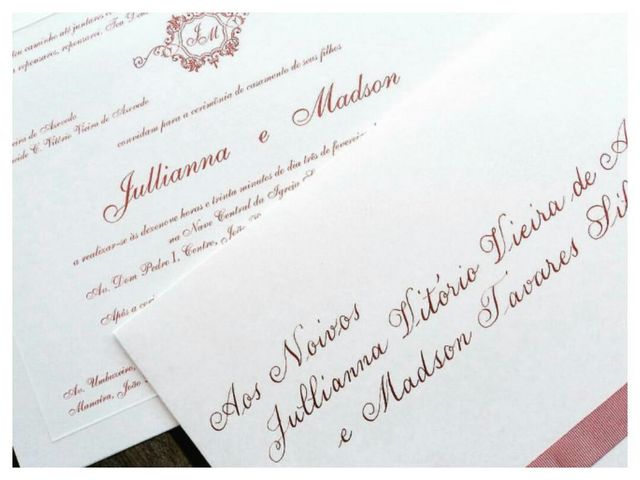 caminho até juntares
repousares, repousarei. Teu
JM
de Azevedo
C. Vitório Vieira de Azevedo
convidam para a cerimônia de casamento de seus filhos
Jullianna e Madson
a realizar-se às dezenove horas e trinta minutos do dia três de fevereiro
na Nave Central da Igreja
Av. Dom Pedro I, Centro, João
Após a
Av. Umbuzeiro,
Manaíra, João
Aos Noivos
Jullianna Vitório Vieira de A
e Madson Tavares Sil